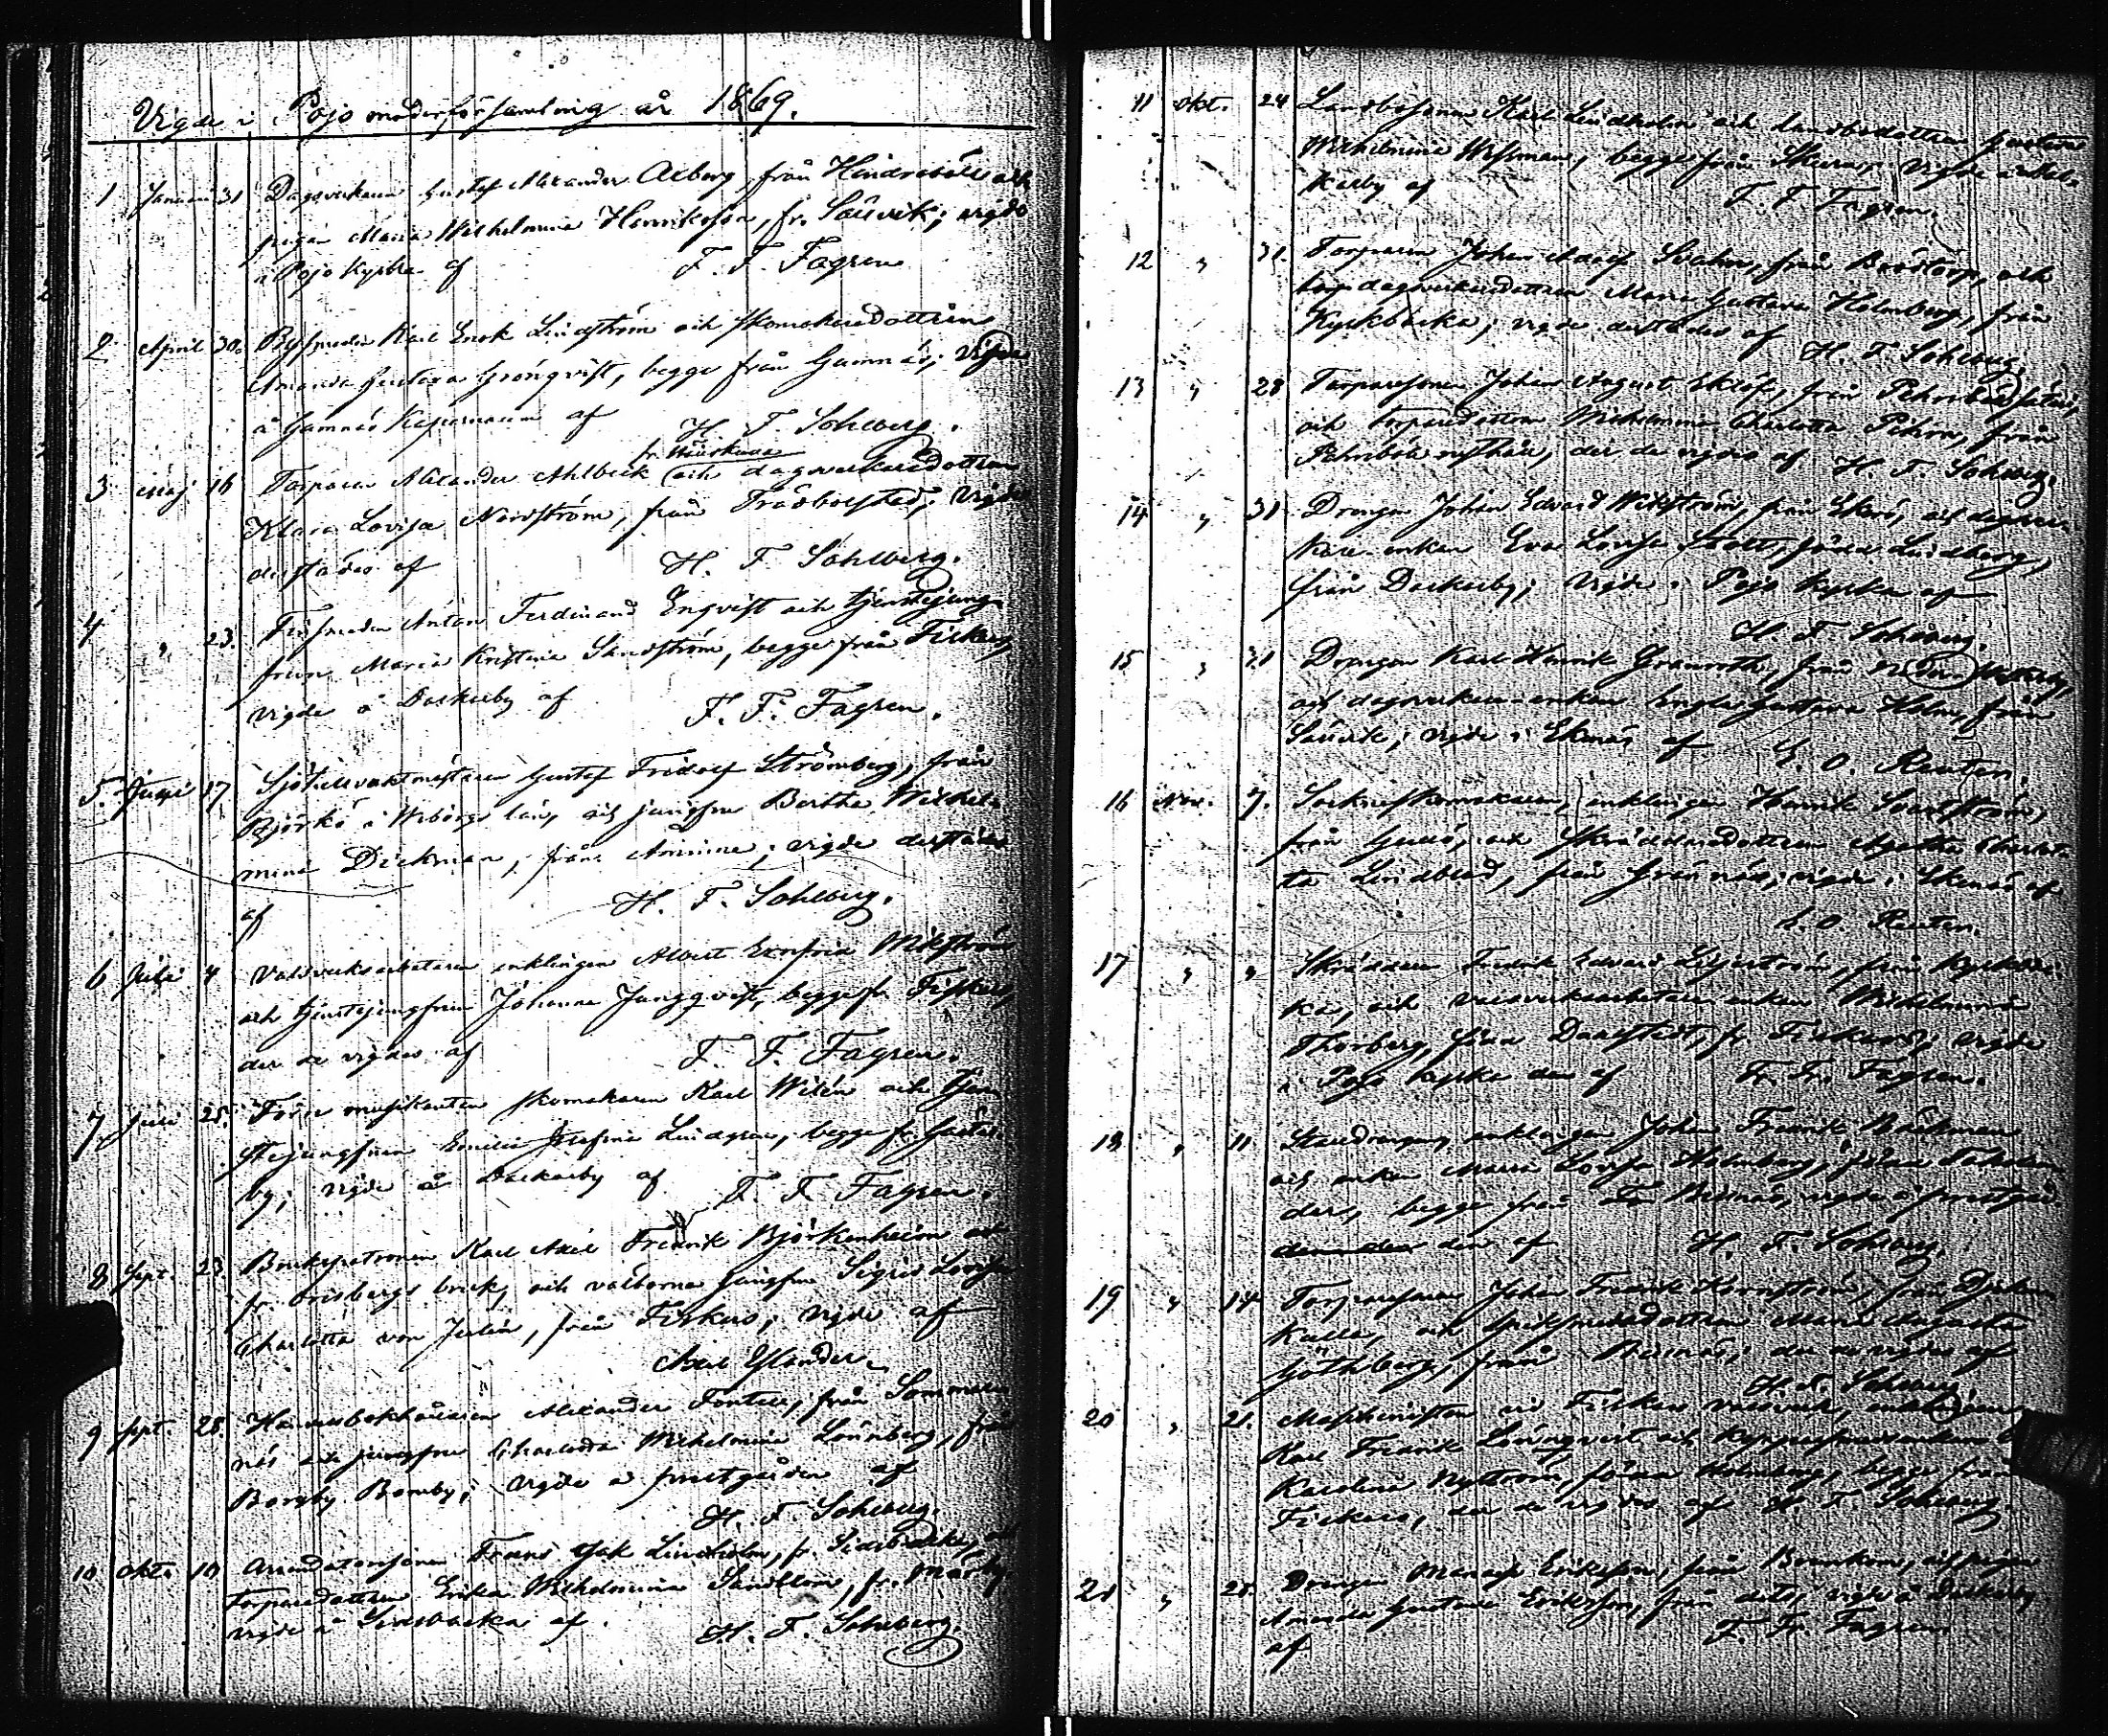 Vigde i Pojo moderförsamling år 1869.
1 Januari 31 Dagsverkaren Gustaf Alexander Alberg, från Hindraböle och
pigan Maria Wilhelmina Henriksson, fr. Sällvik; vigde
i Pojo Kyrka af F. F. Fagren
2 April 30. Bysmeden Karl Enok Lindström och skomakaredottren
Amanda Gustava Grönqvist, begge från Gumnäs; Vigde
å Gumnäs Kapernaum af H. F. Sohlberg.
fr.
3 Maj 16 Torparen Alexander Ahlbeck och dagsverkaredottren
Klara Lovisa Nordström, från Trädbolstad; Vigde
derstädes af H. F. Sohlberg.
4 " 23. Finsmeden Anton Ferdinand Engvist och tjenstejung-
frun Maria Kristina Sandström, begge från Fiskars,
vigde å Dalkarby af F. F. Fagren.
5. Juni 17 Sjötullvaktmästaren Gustaf Fridolf Strömberg, från
Björkö i Wiborgs län, och jungfrun Bertha Wilhel-
mina Dickman, från Åminne; vigde derstädes
af H. F. Sohlberg.
6 Juli 4 Valsverksarbetaren enklingen Albert Ernfrid Wikström
och tjenstejungfrun Johanna Jungqvist, begge fr. Fiskars,
der de vigdes af F. F. Fagren.
7 Juli 25. Förre musikanten skomakaren Karl Wilén och tjen-
stejungfrun Emilia Josefina Lindgren, begge fr. Gästers-
by; vigde å Dalkarby af F. F. Fagren.
8 Sept. 23. Brukspatronen Karl Axel Fredrik Björkenheim
fr. Orisbergs bruk, och välborna jungfrun Sigrid Lovisa
Charlotta von Julin, från Fiskars; vigde af
Axel Ylander
9 Sept. 28. Hammarbokhållaren Alexander Fontell, från Sommar-
näs och jungfrun Charlotta Wilhelmina Lönnberg, från
Borgby Bonsby; vigde å prestgården af
H. F. Sohlberg.
10 Okt. 10 Arrendatorsonen Frans Isak Lindholm, fr. Sidsbacka, och
torparedottren Erika Wilhelmina Sandblom, fr. Mörby
vigde å Sidsbacka af. H. F. Sohlberg.
11 Okt. 24 Landbosonen Karl Lindholm och landbodottren Gustava
Wilhelmina Wessman, begge från Skuru; Vigde å Dal-
karby af F. F. Fagren.
12 " 31. Torparen Johan Adolf Svahn, från Brödtorp, och
torpdagsverkaredottren Maria Gustava Holmberg, från
Kyrkbacka; vigde derstädes af H. F. Sohlberg.
13 " 28 Torparesonen Johan August Eklöf, från
och torparedottren Wilhelmina Charlotta Pehrn, från
der de vigdes af H. F. Sohlberg.
14 " 31 Drengen Johan Edvard Wikström, från Ekerö, och dagsver-
kare-enkan Eva Lovisa född Lindberg,
från Dalkarby; vigde i Pojo kyrka af
H. F. Sohlberg.
15 " 31 Drengen Karl Henrik Granroth, från Nedre
och dagsverkare-enkan Engla Gustava Holm, från
Sällvik; vigde i Ekenäs af G. O. Reuter.
16 Nov. 7. Sockneskomakaren, enklingen Henrik Sandström,
från och Skräddaredottren Agatha Charlot-
ta Lindblad, från Grännäs; vigde i Ekenäs af
G. O. Reuter.
17 " " Skräddaren Fredrik Edvard Liljeström, från Kyrkbac-
ka, och valsverksarbetare enkan Wilhelmina
Thorberg, från Dahlstedt, fr. Fiskars; vigde
i Pojo kyrka den af F. Fr. Fagren.
18 " 11 Staldrengen, enklingen Johan Fredrik Bäckman
och enkan Maria Lovisa Holmberg, född
der, begge från Billnäs, vigde i prestgår-
den af H. F. Sohlberg.
19 " 14 Torparesonen Johan Fredrik Kornström, från
Kulla, och spiksmedsdottren Maria Augusta
Göthberg, från Billnäs; der de vigdes af
H. F. Sohlberg.
20 " 21. Maskinisten vid Fiskars valsverk, enklingen
Karl Fredrik Lindqvist och kopparsmedsenkan
Karolina Nyström, född Holmberg, begge från
Fiskars, der de vigdes af H. F. Sohlberg.
21 " 28. Drengen Eriksson, från och pigan
Amanda Gustava Eriksson, från vigde å Dalkarby
af F. Fr. Fagren